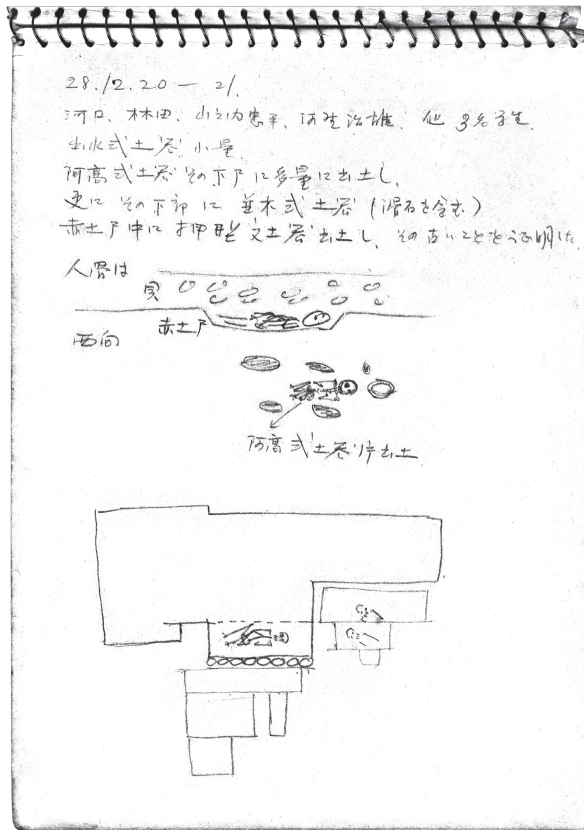 28.12.20 — 21.
河口、林田、山之内忠平、河野治雄、他3名学生
出水式土器 小量
阿高式土器その下尸に多量に出土し、
更に その下部に 並木式土器 (滑石を含む)
赤土尸中に押型文土器出土し、その古いことを証明した
人骨は
貝
赤土尸
西向
阿高式土器片出土